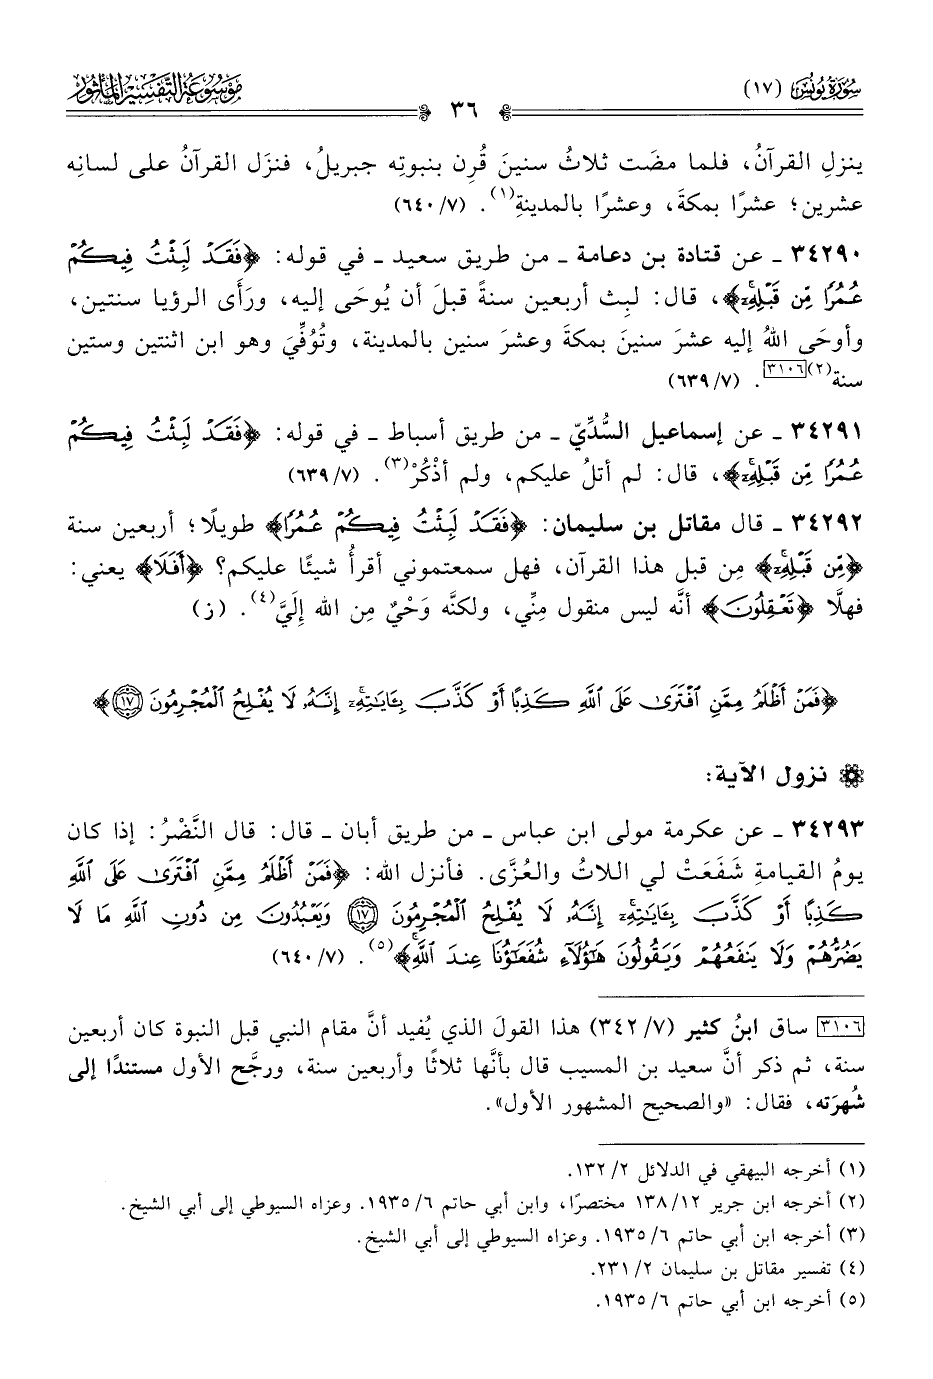 سُورَةُ يُونُسَ (١٧)
٣٦
مَوْسُوعَةُ التَّفْسِيرِ المَأْثُورِ
ينزلِ القرآنُ، فلما مضَت ثلاثُ سنينَ قُرِن بنبوتِه جبريلُ، فنزَل القرآنُ على لسانِه
عشرين؛ عشرًا بمكةَ، وعشرًا بالمدينةِ(١). (٦٤٠/٧)
٣٤٢٩٠ ـ عن قتادة بن دعامة ـ من طريق سعيد ـ في قوله: ﴿فَقَدْ لَبِثْتُ فِيكُمْ
عُمُرًا مِّن قَبْلِهِۦٓ﴾، قال: لبِث أربعين سنةً قبلَ أن يُوحَى إليه، ورَأَى الرؤيا سنتين،
وأوحَى اللهُ إليه عشرَ سنينَ بمكةَ وعشرَ سنين بالمدينة، وتُوُفِّيَ وهو ابن اثنتين وستين
سنة(٢)[٣١٠٦]. (٦٣٩/٧)
٣٤٢٩١ ـ عن إسماعيل السُّدِّيّ ـ من طريق أسباط ـ في قوله: ﴿فَقَدْ لَبِثْتُ فِيكُمْ
عُمُرًا مِّن قَبْلِهِۦٓ﴾، قال: لم أتلُ عليكم، ولم أذْكُرْ(٣). (٦٣٩/٧)
٣٤٢٩٢ ـ قال مقاتل بن سليمان: ﴿فَقَدْ لَبِثْتُ فِيكُمْ عُمُرًا﴾ طويلًا؛ أربعين سنة
﴿مِّن قَبْلِهِۦٓ﴾ مِن قبل هذا القرآن، فهل سمعتموني أقرأُ شيئًا عليكم؟ ﴿أَفَلَا﴾ يعني:
فهلَّا ﴿تَعْقِلُونَ﴾ أنَّه ليس منقول مِنِّي، ولكنَّه وَحْيٌ مِن الله إلَيَّ(٤). (ز)
﴿فَمَنْ أَظْلَمُ مِمَّنِ ٱفْتَرَىٰ عَلَى ٱللَّهِ كَذِبًا أَوْ كَذَّبَ بِـَٔايَـٰتِهِۦٓ إِنَّهُۥ لَا يُفْلِحُ ٱلْمُجْرِمُونَ ١٧﴾
نزول الآية:
٣٤٢٩٣ ـ عن عكرمة مولى ابن عباس ـ من طريق أبان ـ قال: قال النَّضْرُ: إذا كان
يومُ القيامةِ شَفَعَتْ لي اللاتُ والعُزَّى. فأنزل الله: ﴿فَمَنْ أَظْلَمُ مِمَّنِ ٱفْتَرَىٰ عَلَى ٱللَّهِ
كَذِبًا أَوْ كَذَّبَ بِـَٔايَـٰتِهِۦٓ إِنَّهُۥ لَا يُفْلِحُ ٱلْمُجْرِمُونَ ١٧ وَيَعْبُدُونَ مِن دُونِ ٱللَّهِ مَا لَا
يَضُرُّهُمْ وَلَا يَنفَعُهُمْ وَيَقُولُونَ هَـٰٓؤُلَآءِ شُفَعَـٰٓؤُنَا عِندَ ٱللَّهِ﴾(٥). (٦٤٠/٧)
[٣١٠٦] ساق ابنُ كثير (٣٤٢/٧) هذا القولَ الذي يُفيد أنَّ مقام النبي قبل النبوة كان أربعين
سنة، ثم ذكر أنَّ سعيد بن المسيب قال بأنَّها ثلاثًا وأربعين سنة، ورجَّح الأول مستندًا إلى
شُهرَته، فقال: «والصحيح المشهور الأول».
(١) أخرجه البيهقي في الدلائل ١٣٢/٢.
(٢) أخرجه ابن جرير ١٣٨/١٢ مختصرًا، وابن أبي حاتم ١٩٣٥/٦. وعزاه السيوطي إلى أبي الشيخ.
(٣) أخرجه ابن أبي حاتم ١٩٣٥/٦. وعزاه السيوطي إلى أبي الشيخ.
(٤) تفسير مقاتل بن سليمان ٢٣١/٢.
(٥) أخرجه ابن أبي حاتم ١٩٣٥/٦.